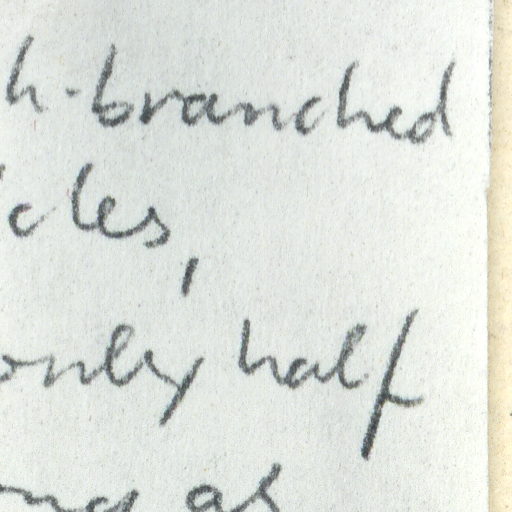 h-branched
cles,
only half
ng as